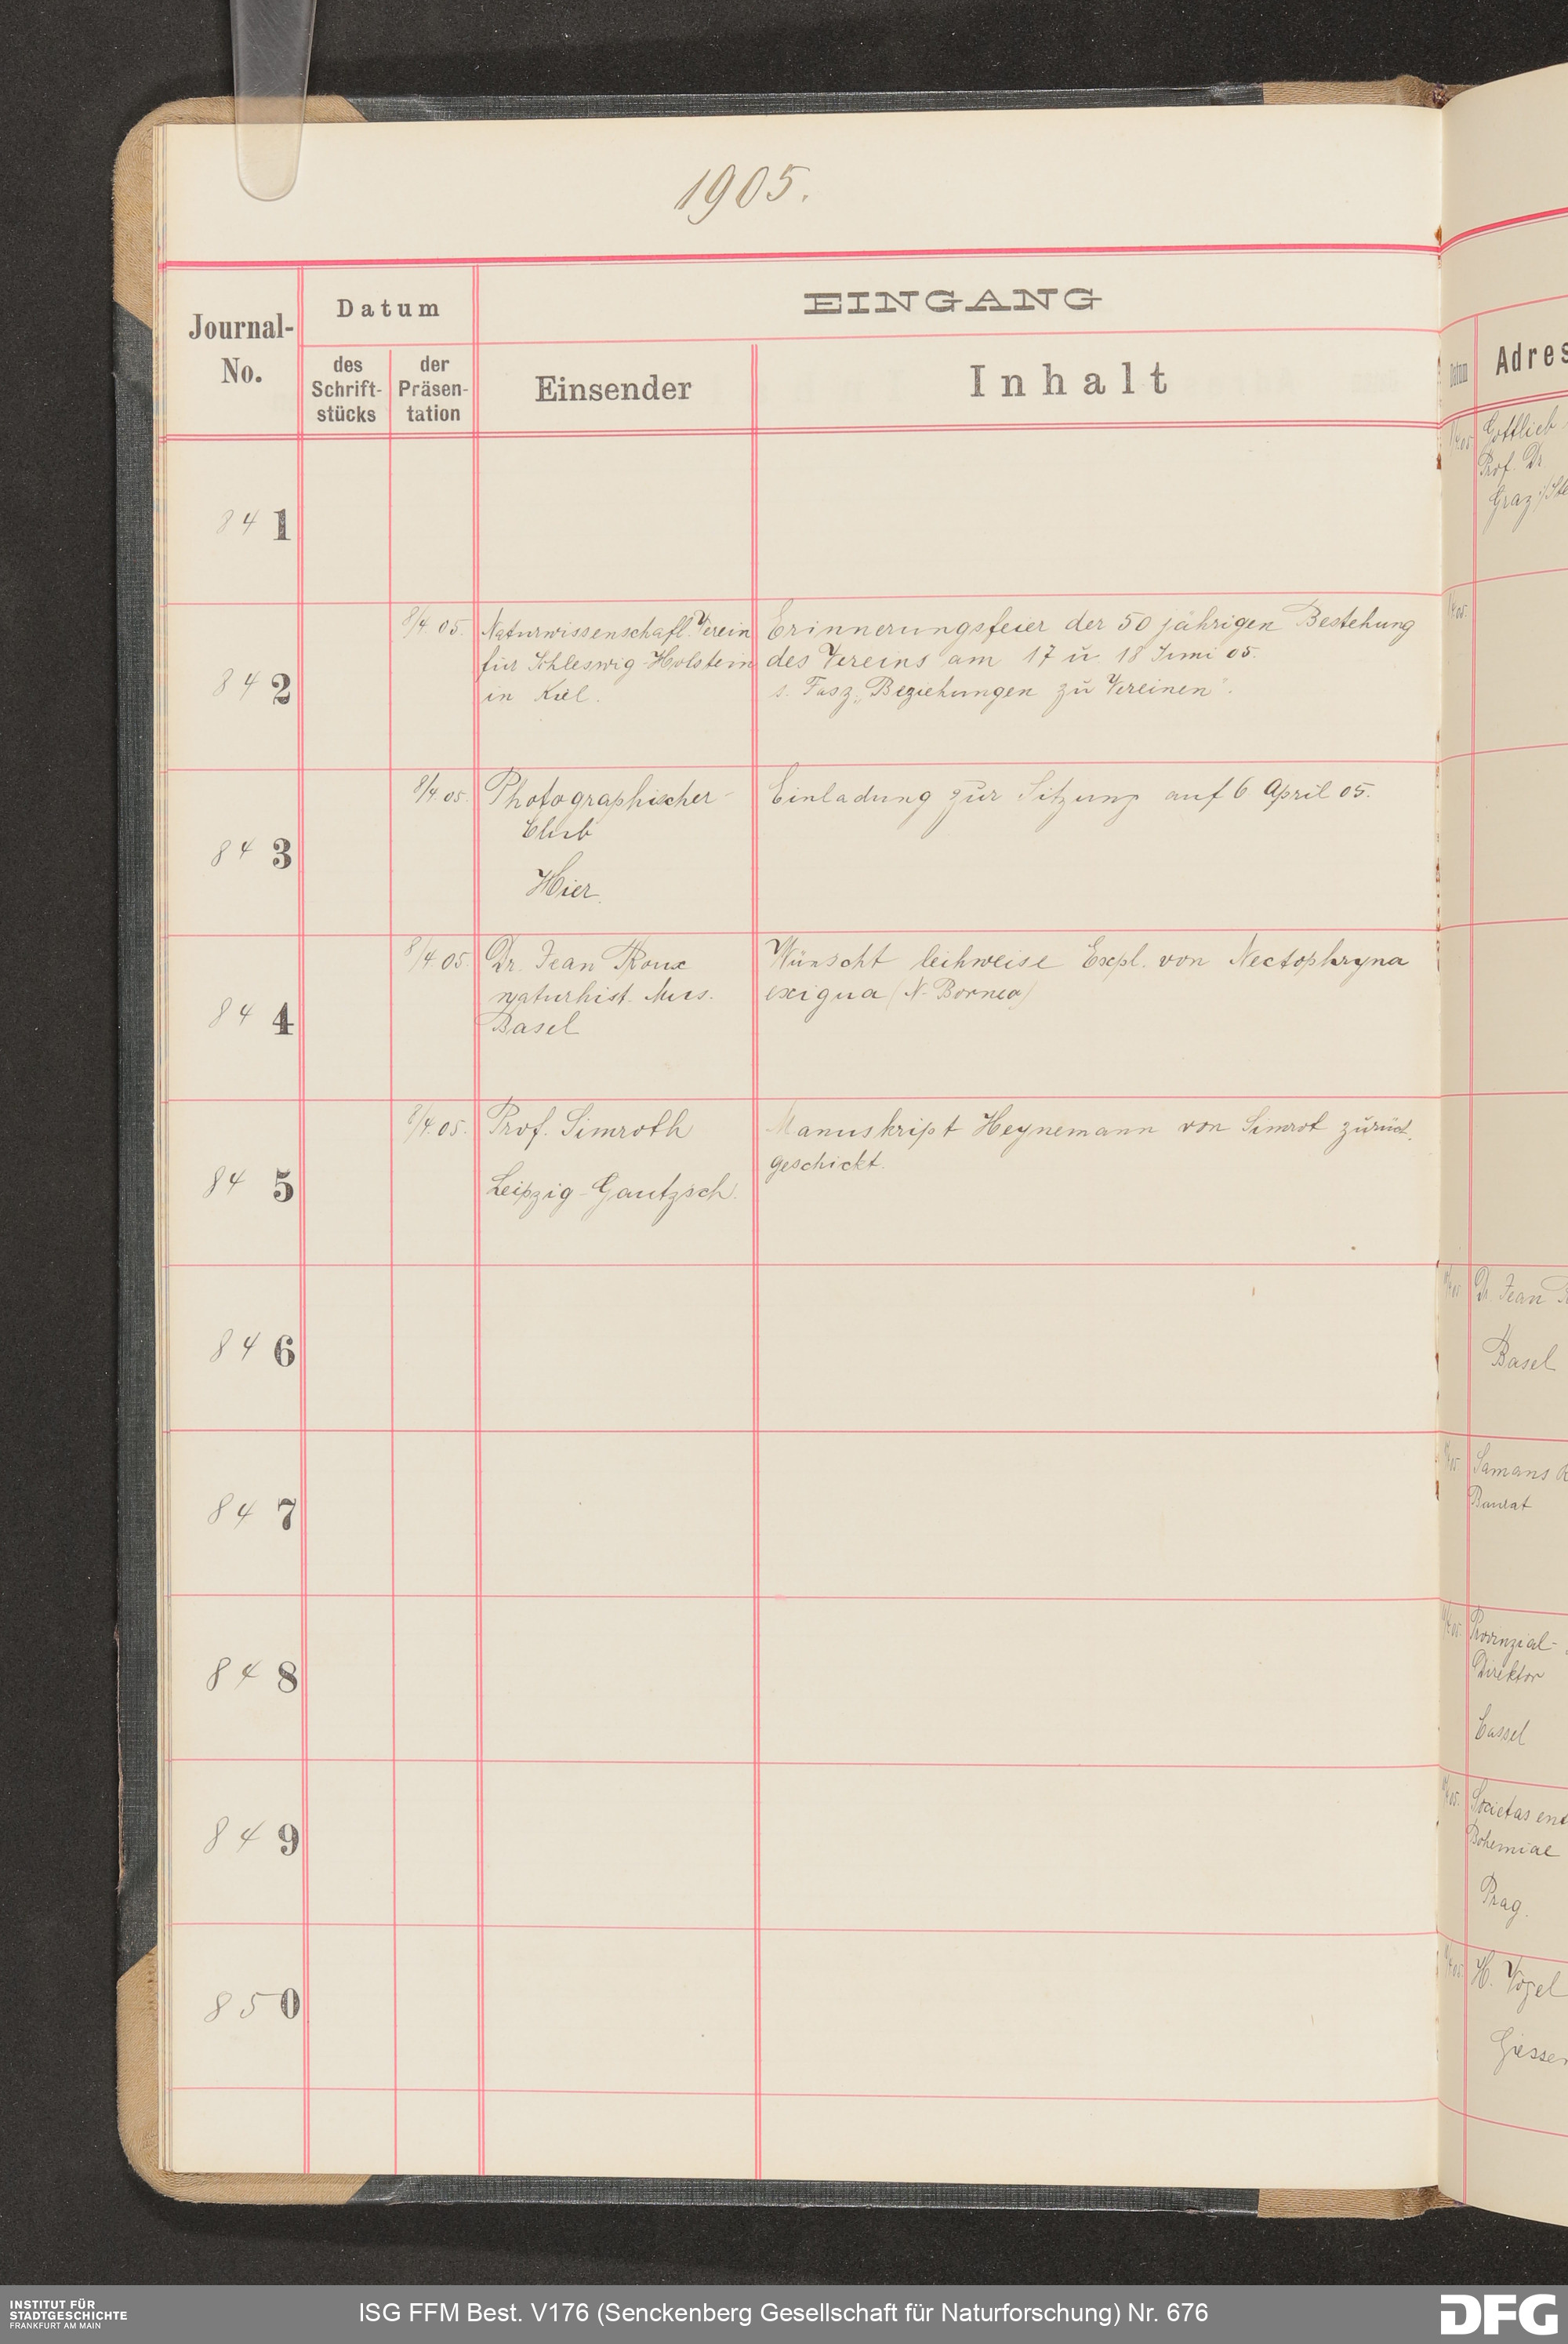 1905.
Journal-
No.
Datum
des
Schrift-
stücks
der
Präsen-
tation
EINGANG
Einsender
Inhalt
841
842
8/4 05.
Naturwissenschaftl. Verein
für Schleswig-Holstein
in Kiel.
Erinnerungsfeier der 50 jährigen Bestehung
des Vereins am 17 u. 18 Juni 05.
s. Fasz. „Beziehungen zu Vereinen".
843
8/4 05.
Photographischer-
Club
Hier.
Einladung zur Sitzung auf 6. April 05.
844
8/4 05.
Dr. Jean Roux
naturhist. Mus.
Basel
Wünscht leihweise Expl. von Nectophryna
exigua (N-Borneo)
845
8/4. 05.
Prof. Simroth
Leipzig-Gautzsch.
Manuskript Heynemann von Simrot zurück.
geschickt.
846
847
848
849
850
Datum
Adres
Gottlieb
Prof. Dr.
Graz
Dr. Jean
Basel
Samans
Baurat
Provinzial-
Direktor
Cassel
Societas ent
Bohemiae
Prag.
H. Vogel
Giessen
INSTITUT FÜR
STADTGESCHICHTE
FRANKFURT AM MAIN
ISG FFM Best. V176 (Senckenberg Gesellschaft für Naturforschung) Nr. 676
DFG